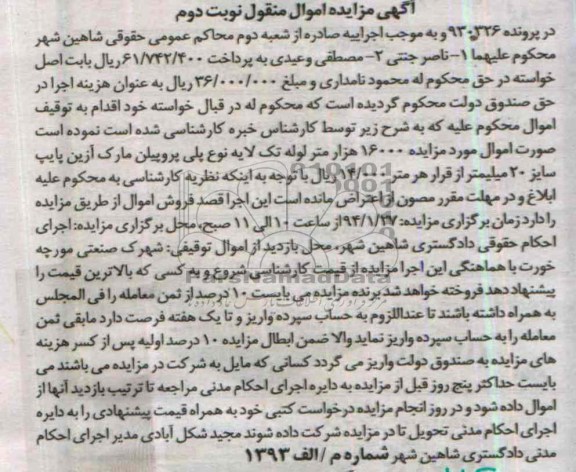 آگهی مزایده اموال منقول نوبت دوم
در پرونده ۹۳۰۳۲۶ و به موجب اجراییه صادره از شعبه دوم محاکم عمومی حقوقی شاهین شهر
محکوم علیهما ۱- ناصر جنتی ۲- مصطفی وعیدی به پرداخت ۶۱/۷۴۲/۴۰۰ ریال بابت اصل
خواسته در حق محکوم له محمود نامداری و مبلغ ۳۶/۰۰۰/۰۰۰ ریال به عنوان هزینه اجرا در
حق صندوق دولت محکوم گردیده است که محکوم له در قبال خواسته خود اقدام به توقیف
اموال محکوم علیه که به شرح زیر توسط کارشناس خبره کارشناسی شده است نموده است
صورت اموال مورد مزایده ۱۶۰۰۰ هزار متر لوله تک لایه نوع پلی پروپیلن مارک آزین پایپ
سایز ۲۰ میلیمتر از قرار هر متر ۱۴/۰۰۰ ریال با توجه به اینکه نظریه کارشناسی به محکوم علیه
ابلاغ و در مهلت مقرر مصون از اعتراض مانده است این اجرا قصد فروش اموال از طریق مزایده
را دارد زمان برگزاری مزایده: ۹۴/۱/۲۷ از ساعت ۱۰ الی ۱۱ صبح، محل برگزاری مزایده: اجرای
احکام حقوقی دادگستری شاهین شهر، محل بازدید از اموال توقیفی: شهرک صنعتی مورچه
خورت با هماهنگی این اجرا مزایده از قیمت کارشناسی شروع و به کسی که بالاترین قیمت را
پیشنهاد دهد فروخته خواهد شد برنده مزایده می بایست ۱۰ درصد از ثمن معامله را فی المجلس
به همراه داشته باشند تا عنداللزوم به حساب سپرده واریز و تا یک هفته فرصت دارد مابقی ثمن
معامله را به حساب سپرده واریز نماید والا ضمن ابطال مزایده ۱۰ درصد اولیه پس از کسر هزینه
های مزایده به صندوق دولت واریز می گردد کسانی که مایل به شرکت در مزایده می باشند می
بایست حداکثر پنج روز قبل از مزایده به دایره اجرای احکام مدنی مراجعه تا ترتیب بازدید آنها از
اموال داده شود و در روز انجام مزایده درخواست کتبی خود به همراه قیمت پیشنهادی را به دایره
اجرای احکام مدنی تحویل تا در مزایده شرکت داده شوند مجید شکل آبادی مدیر اجرای احکام
مدنی دادگستری شاهین شهر شماره م / الف ۱۳۹۳
ParsNamadData